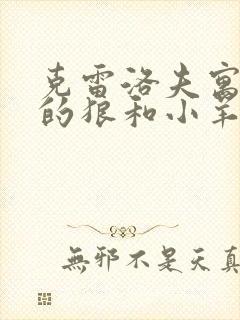 克雷洛夫寓
的狼和小羊
無邪不是天真